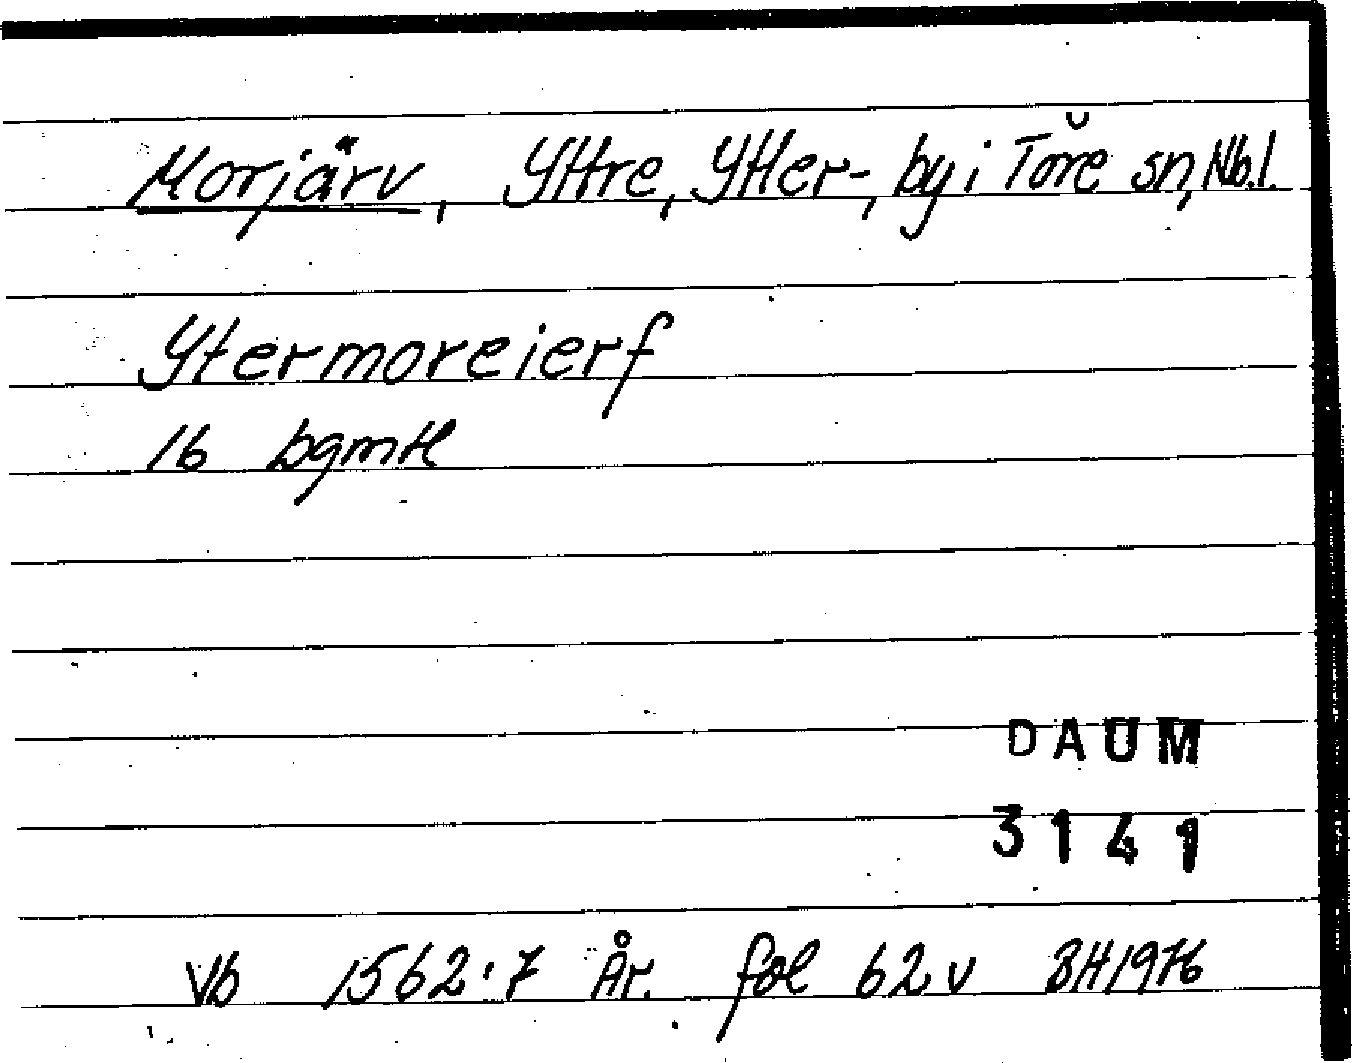 Morjärv, Yttre, Ytter-, by i Töre sn, Nb.l.
Ytermoreierf
16 bgmtl
DAUM
3141
Vb 1562:7 År. fol 62v BH1976